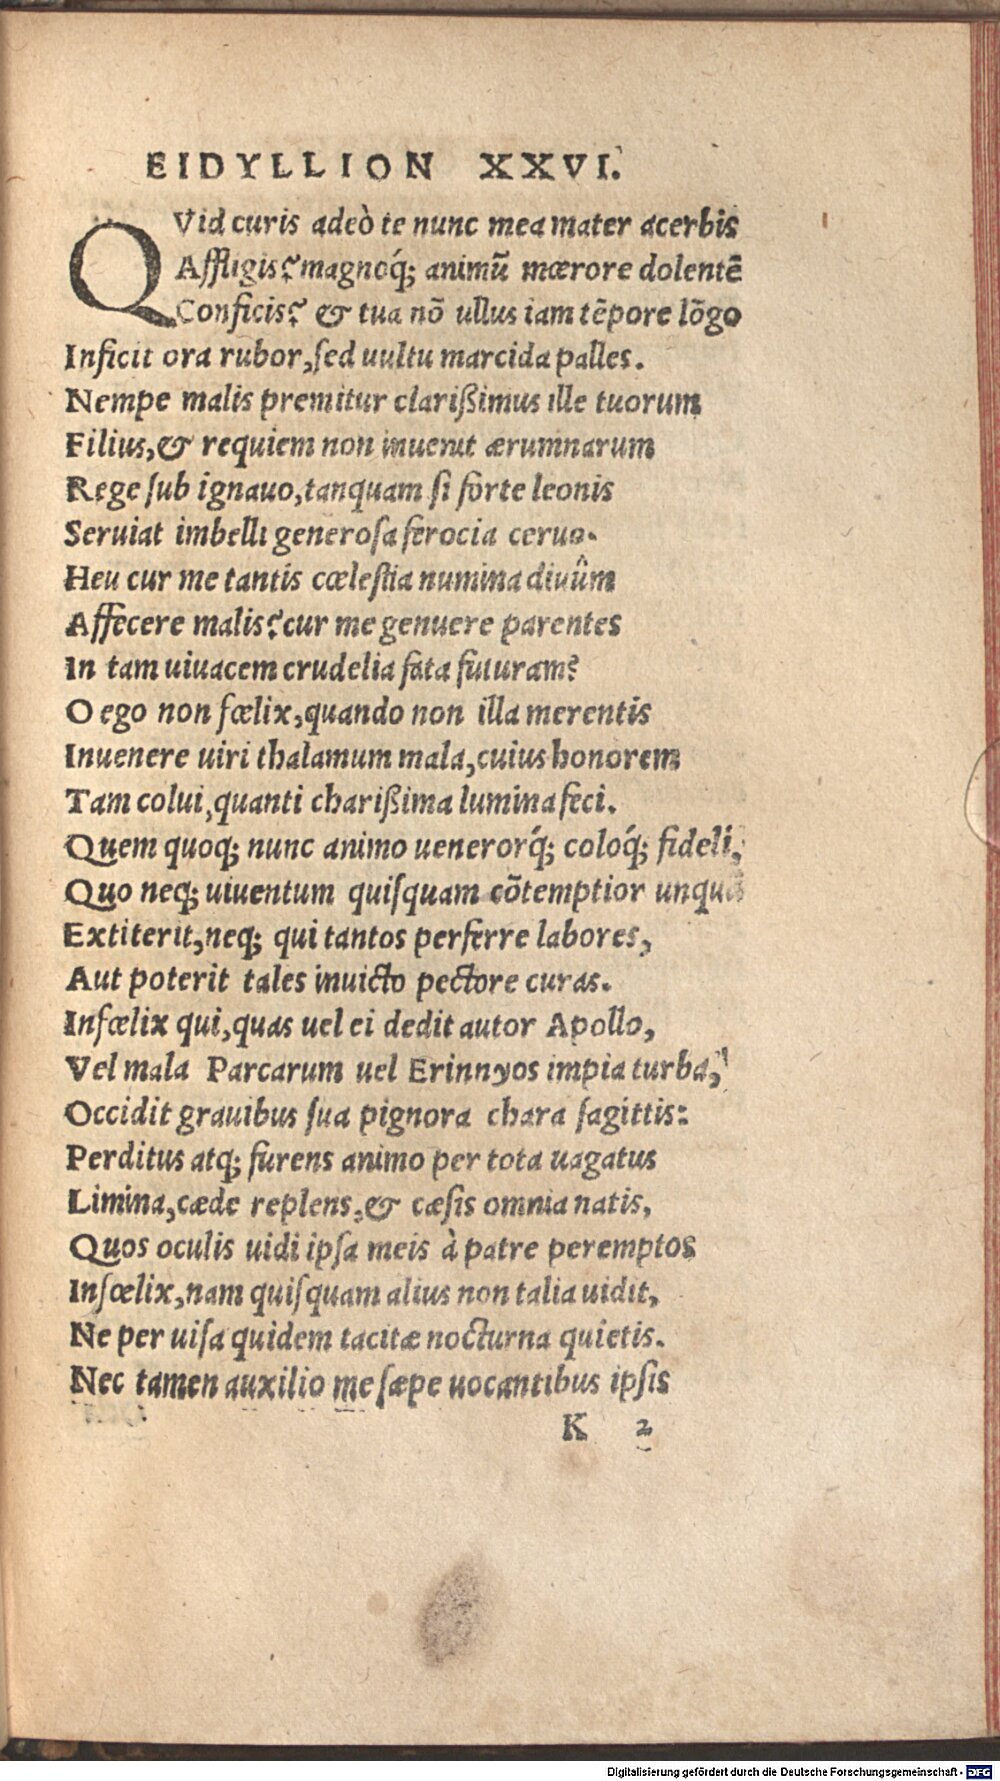 EIDYLLION XXVI.
QVid curis adeò te nunc mea mater acerbis
Affligis? magnoq́; animū mœrore dolentē
Conficis? & tua nō ullus iam tēpore lōgo
Inficit ora rubor, sed uultu marcida palles.
Nempe malis premitur clarißimus ille tuorum
Filius, & requiem non inuenit ærumnarum
Rege sub ignauo, tanquam si forte leonis
Seruiat imbelli generosa ferocia ceruo.
Heu cur me tantis cœlestia numina diuûm
Affecere malis? cur me genuere parentes
In tam uiuacem crudelia fata futuram?
O ego non fœlix, quando non illa merentis
Inuenere uiri thalamum mala, cuius honorem
Tam colui, quanti charißima lumina feci.
Quem quoq; nunc animo uenerorq́; coloq́; fideli,
Quo neq; uiuentum quisquam cōtemptior unquā
Extiterit, neq; qui tantos perferre labores,
Aut poterit tales inuicto pectore curas.
Infœlix qui, quas uel ei dedit autor Apollo,
Vel mala Parcarum uel Erinnyos impia turba,
Occidit grauibus sua pignora chara sagittis:
Perditus atq; furens animo per tota uagatus
Limina, cæde replens, & cæsis omnia natis,
Quos oculis uidi ipsa meis à patre peremptos
Infœlix, nam quisquam alius non talia uidit,
Ne per uisa quidem tacitæ nocturna quietis.
Nec tamen auxilio me sæpe uocantibus ipsis
K 2
Digitalisierung gefördert durch die Deutsche Forschungsgemeinschaft - DFG